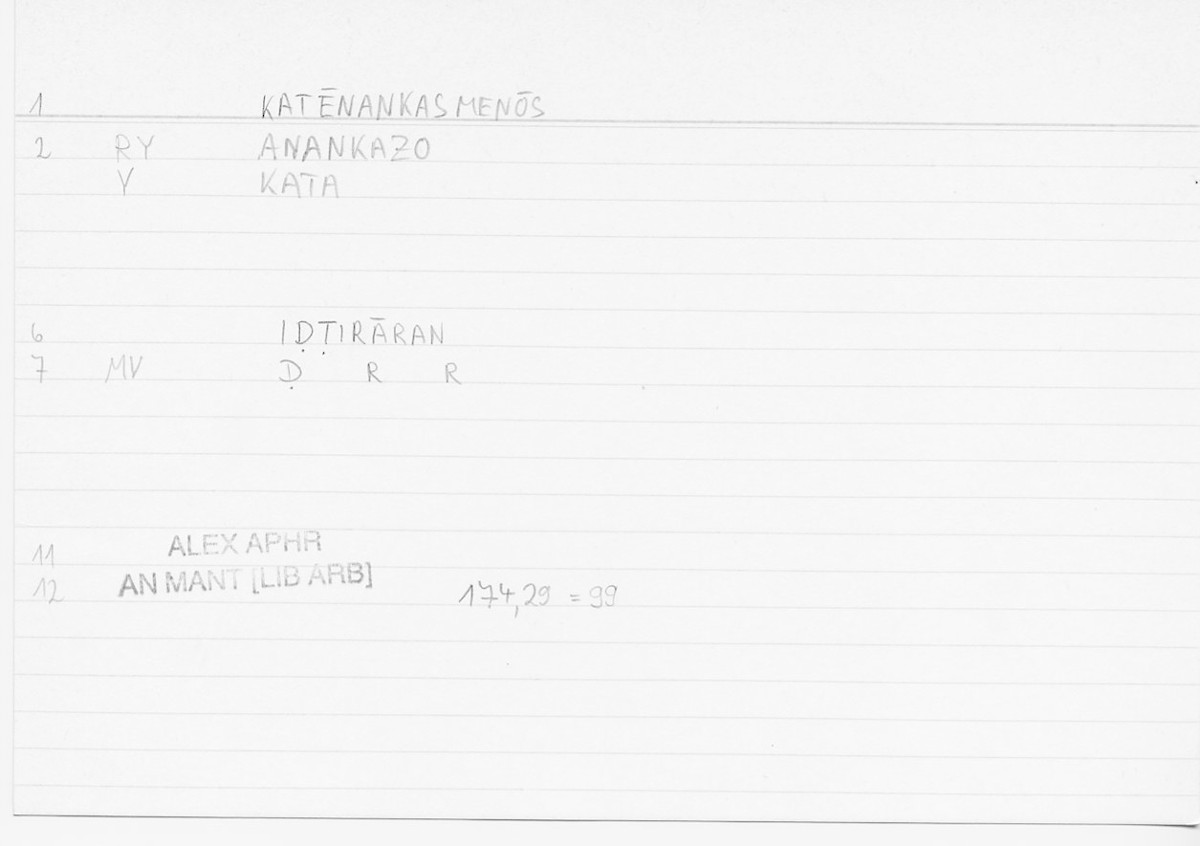 1 KATĒNANKASMENŌS
2 RY ANANKAZO
V KATA
6 IḌṬIRĀRAN
7 MV Ḍ R R
11 ALEX APHR
12 AN MANT [LIB ARB] 174,29 = 99